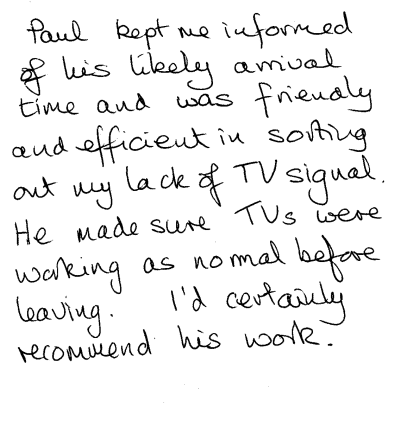 Paul kept me informed
of his likely arrival
time and was friendly
and efficient in sorting
out my lack of TV signal.
He made sure TVs were
working as normal before
leaving. I'd certainly
recommend his work.